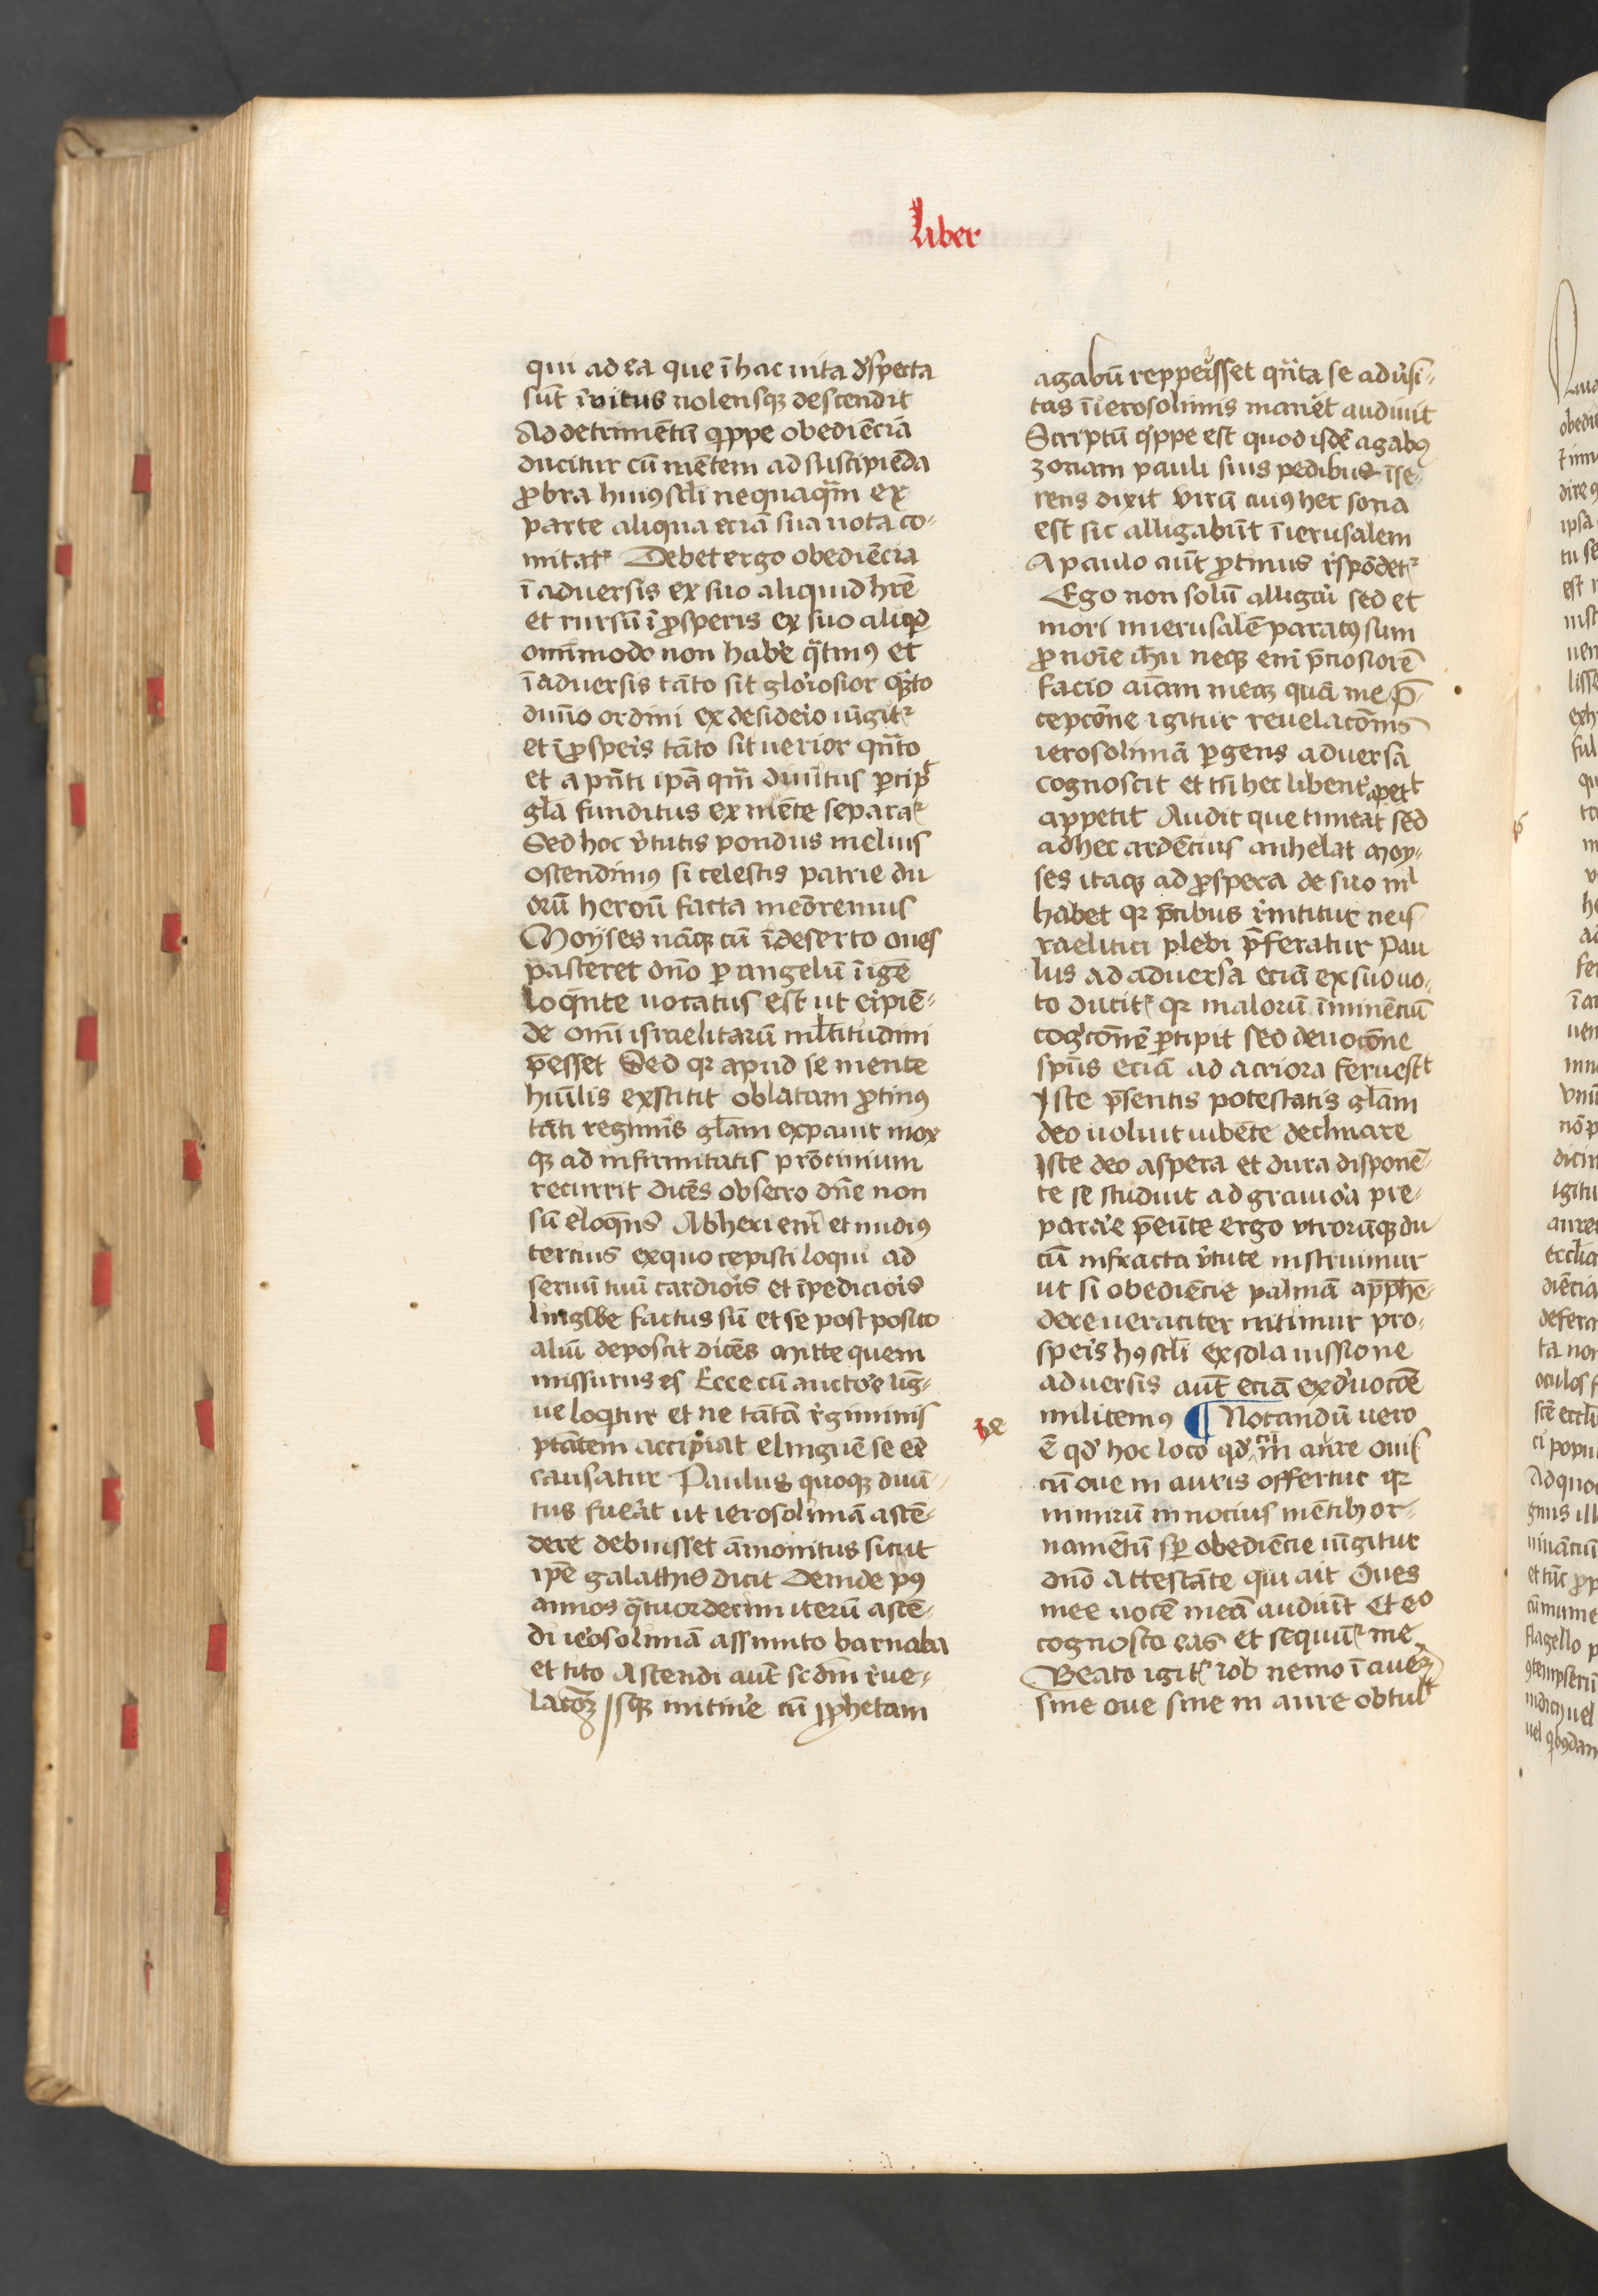 Liber
qui ad ea que ī hac uita dˀspecta
sūt īuitus nolensqꝫ descendit
Ad detrimētū qͥppe obediēcia
ducitur cū mētem ad suscipiēda
ꝓbra huiꝰ scl̄i nequaqᷓm ex
parte aliqua eciā sua uota co-
mitatᷣ Debet ergo obediēcia
ī aduersis ex suo aliquid hr̄e
et rursū ī ꝓsperis ex suo aliqͥd
omīmodo non habe᷑ qᷓtinꝰ et
ī aduersis tāto sit gloriosior qᷓto
diuīo ordini ex desideͥo iūgitᷣ
et ī ꝓspeˀis tāto sit uerior qn̄to
et a pn̄ti ip̄a qm̄ diuītus ꝑcipͭ
gl̄a funditus ex mēte separaᷣ
Sed hoc vˀtutis pondus melius
ostendimꝰ si celestis patrie du
orū heroū facta meōremus
Moyses nāqꝫ cū ī deserto oues
pasceret dn̄o ꝑ angelū ī igē
loqᷓnte uocatus est ut eͥpiē-
de omī israelitarū ml̄titudini
p̄esset Sed qꝛ apud se mente
huīlis exstitit oblatam ꝓtinꝰ
tāti regimīs gl̄am expauit mox
qꝫ ad infirmitatis p̄ocinium
recurrit dicēs obsecro dn̄e non
sū eloqn̄s Ab heri em̄ et nudiꝰ
tercius ex quo cepisti loqui ad
seruū tuū tardioˀis et īpedicioˀis
lingwe factus sū et se post posito
aliū deposcit dicēs mitte quem
missurus es Ecce cū auctoˀe līg-
ue loqͥtur et ne tātā rˀgiminis
ptātem accipiat elinguē se eē
causatur Paulus quoqꝫ diuī-
tus fueˀat ut ierosolimā ascē-
dere debuisset āmonitus sicut
ip̄e galathis dicit Deinde pꝰ
annos qᷓtuordecim iterū ascē-
di ieˀosolimā assumto barnaba
et tito Ascendi aūt scdm̄ rˀue-
lacōꝫ Isqꝫ itineˀe cū ꝓphetam
agabū repperisset qn̄ta se aduˀsi-
tas ī ierosolimis maneˀet audiuit
Scriptū qͥppe est quod isdē agabꝰ
zonam pauli suis pedibus īse-
rens dixit virū cuiꝰ hec zona
est sic alligabūt ī ierusalem
A paulo aūt ꝓtinus rˀspōdetᷣ
Ego non solū alligaˀi sed et
mori in ierusalē paratꝰ sum
ꝓ noīe ih̄u neqꝫ enī p̄ciosiorē
facio aīam meaꝫ quā me p̄-
cepcōne igitur reuelacōnis
ierosolimā ꝑgens aduersa
cognoscit et tn̄ hec libentˀ apetͭ
appetit Audit que timeat sed
ad hec ardēcius anhelat Moy-
ses itaqꝫ ad ꝓspera de suo nͥl
habet qꝛ p̄cibus rˀnititur ne is-
raelitici plebi p̄feratur Pau
lus ad aduersa eciā ex suo uo-
to ducitᷣ qꝛ malorū īminēciū
cogͥcōnē ꝑcipit sed deuocōne
spūs eciā ad acriora feruescͭ
Iste p̄sentis potestatis gl̄am
deo uoluit iubēte declinare
Iste deo aspera et dura disponē-
te se studuit ad grauioˀa pre-
paraˀe p̄eūte ergo vtrorūqꝫ du
cū infracta vˀtute instruimur
ut si obediēcie palmā app̄hē-
dere ueraciter nitimur pro-
speˀis hꝰ scl̄i ex sola iussione
aduersis aūt eciā ex dˀuocōe
militemꝰ ¶ Notandū uero
ē qd̕ hoc loco qd̕ cū in aure ouis
cū oue in auris offertur qꝛ
nimirū innocius mētibꝫ or-
namētū sꝑ obediēcie iūgitur
dn̄o Attestāte qui ait Oues
mee uocē meā audiūt Et eͦ
cognosco eas et sequūtᷣ me
Beato igitᷣ iob nemo ī aureꝫ
sine oue sine in aure obtulͭ